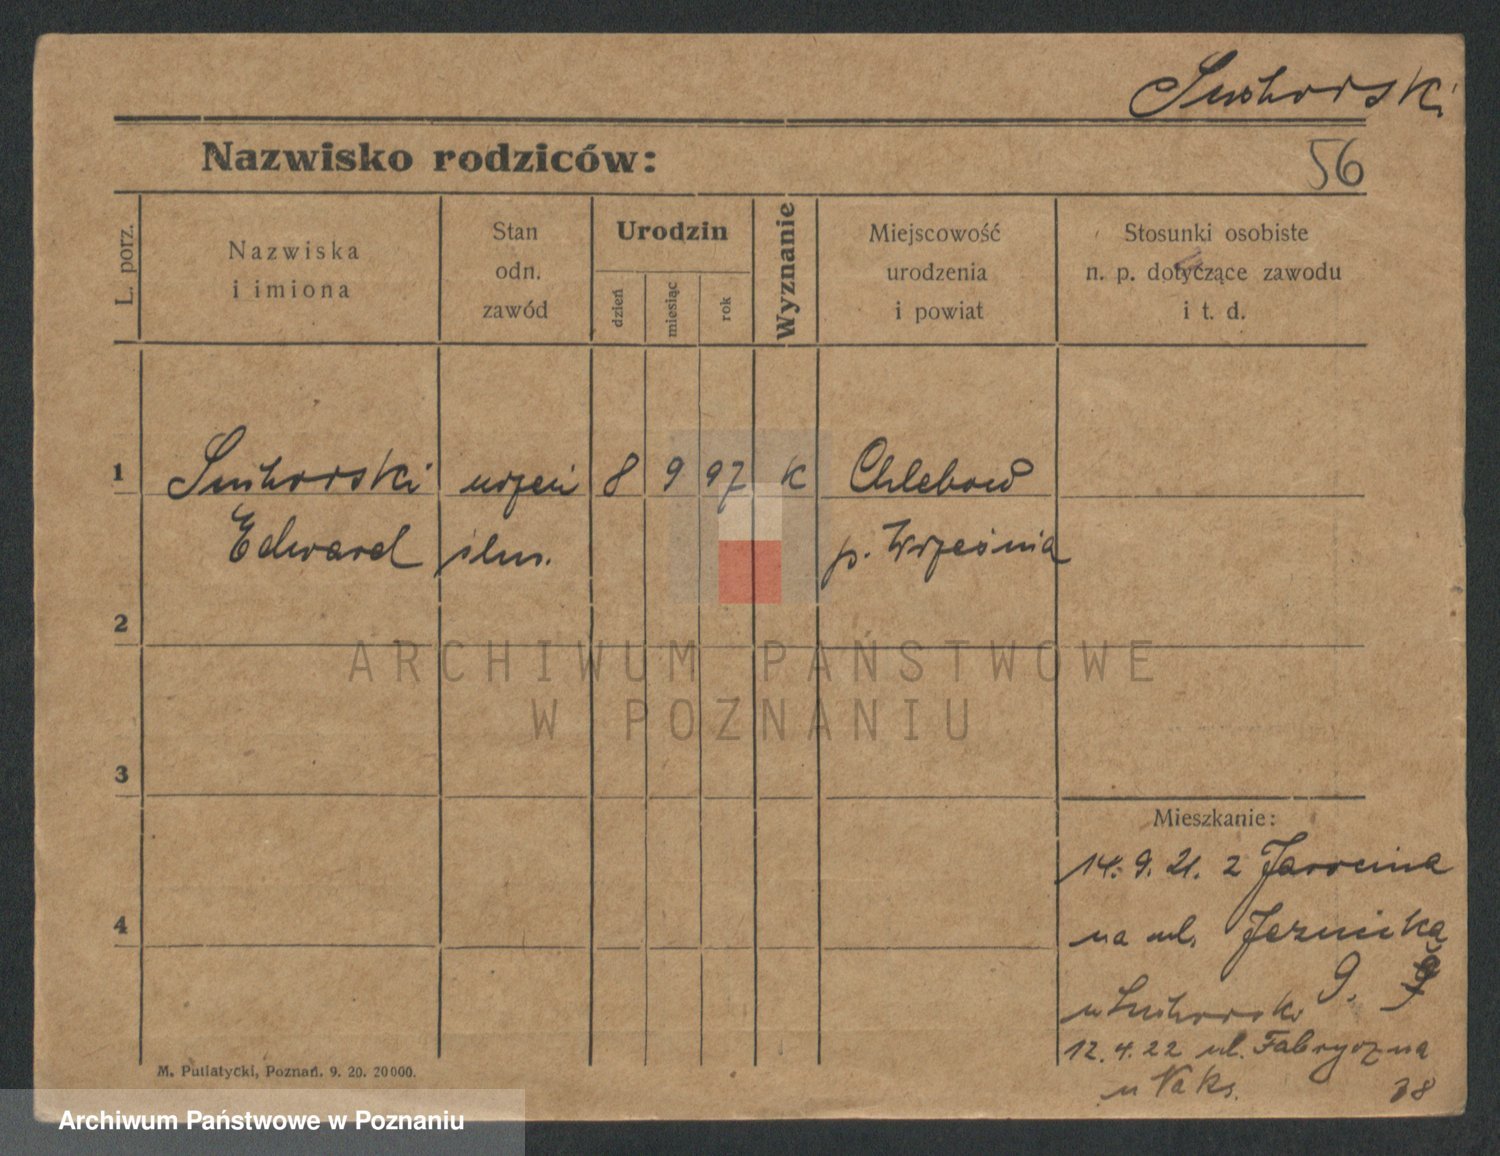 Suchorski
Nazwisko rodziców:
56
L. porz.
Nazwiska
i imiona
Stan
odn.
zawód
Urodzin
dzień
miesiąc
rok
Wyznanie
Miejscowość
urodzenia
i powiat
Stosunki osobiste
n. p. dotyczące zawodu
i t. d.
1
Suchorski
8 9 97 k Chlebowo
Edward
ślus.
p. Września
2
3
4
Mieszkanie:
14. 9. 21. z Jarocina
na ul. Jezuicką
9.
u Suchorski
12. 4. 22 ul. Fabryczna
u 38
M. Putiatycki, Poznań. 9. 20. 20000.
ARCHIWUM PAŃSTWOWE
W POZNANIU
Archiwum Państwowe w Poznaniu